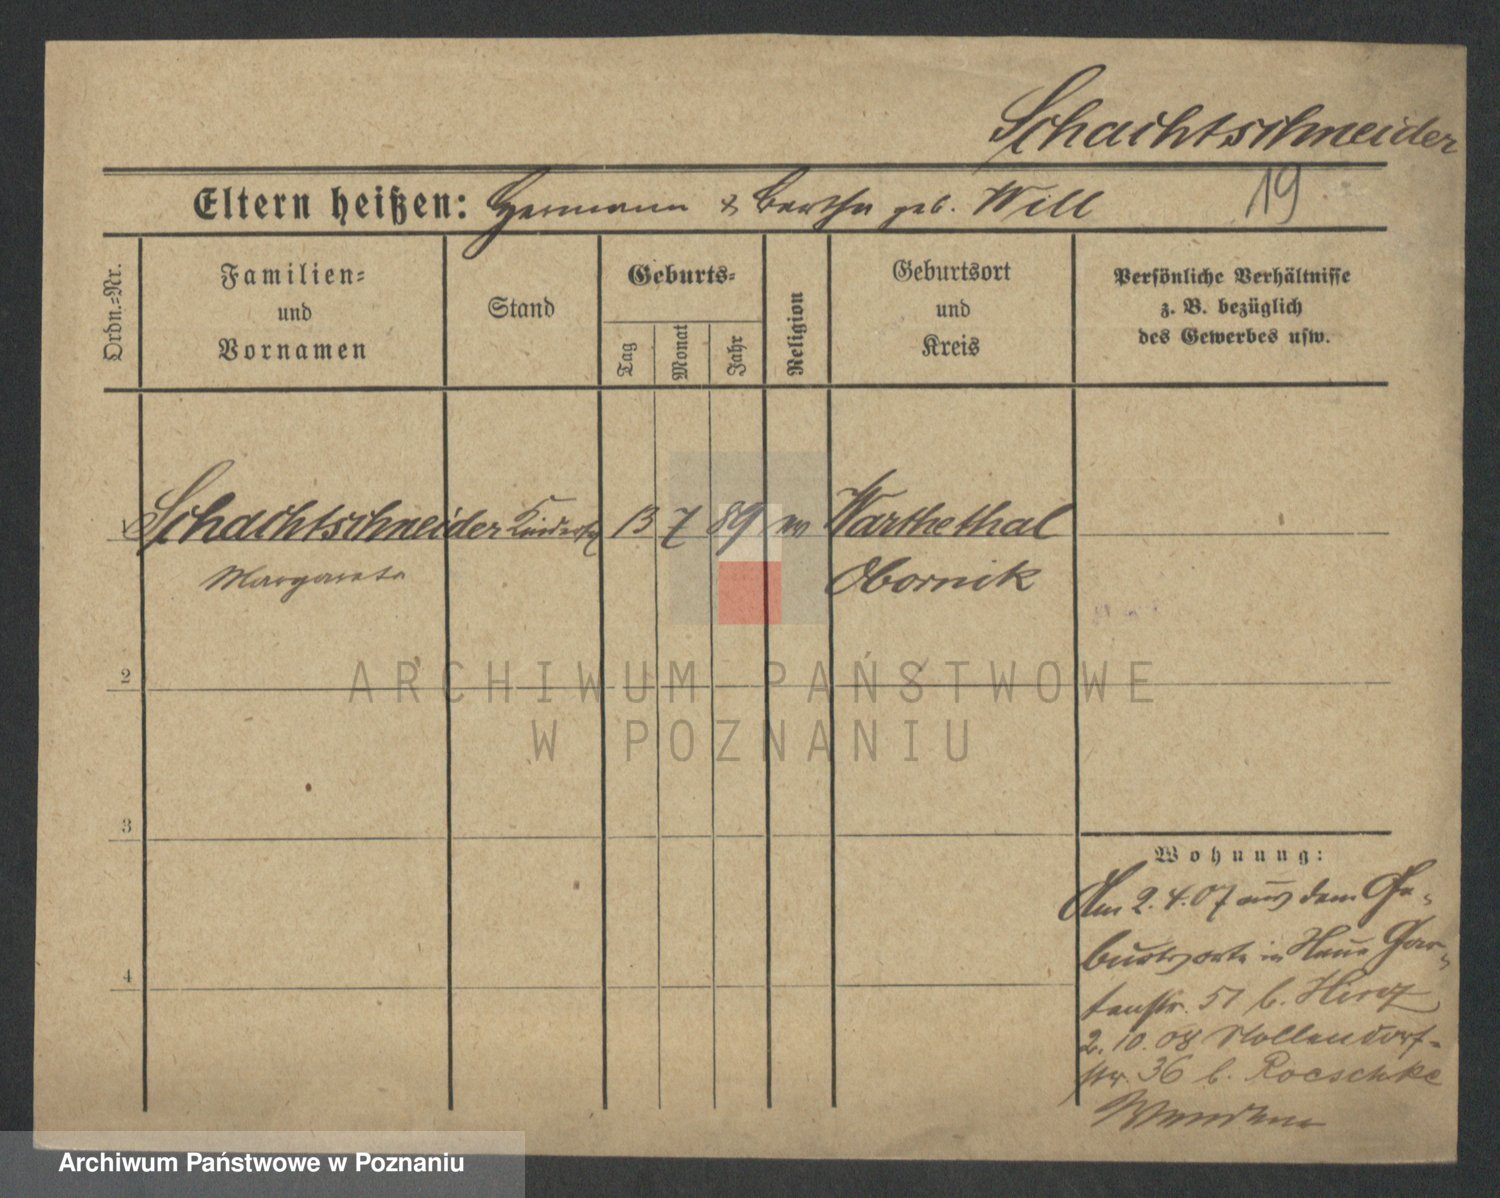 Schachtschneider
Eltern heißen: Hermann & Bertha geb. Will 19
Ordn.=Nr.
Familien=
und
Vornamen
Stand
Geburts=
Tag
Monat
Jahr
Religion
Geburtsort
und
Kreis
Persönliche Verhältnisse
z. B. bezüglich
des Gewerbes usw.
Schachtschneider 13 7 89 ev Warthethal
Margareta Obornik
2
3
4
Wohnung:
Am 2.4.07 aus dem Ge-
burtsorte in Neue Gar-
tenstr. 51 b.
2.10.08 Nollendorf-
str. 36 b. Roeschke
ARCHIWUM PAŃSTWOWE
W POZNANIU
Archiwum Państwowe w Poznaniu